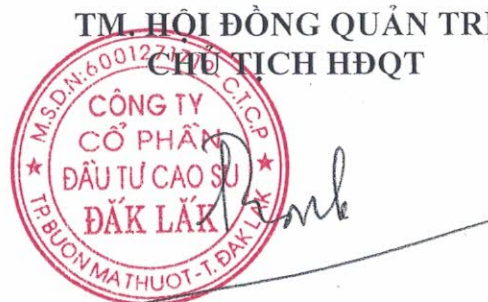 TM. HỘI ĐỒNG QUẢN TRỊ
CHỦ TỊCH HĐQT
CÔNG TY
CỔ PHẦN
ĐẦU TƯ CAO SU
ĐẮK LẮK
TP.BUÔN MA THUỘT-T.ĐẮK LẮK